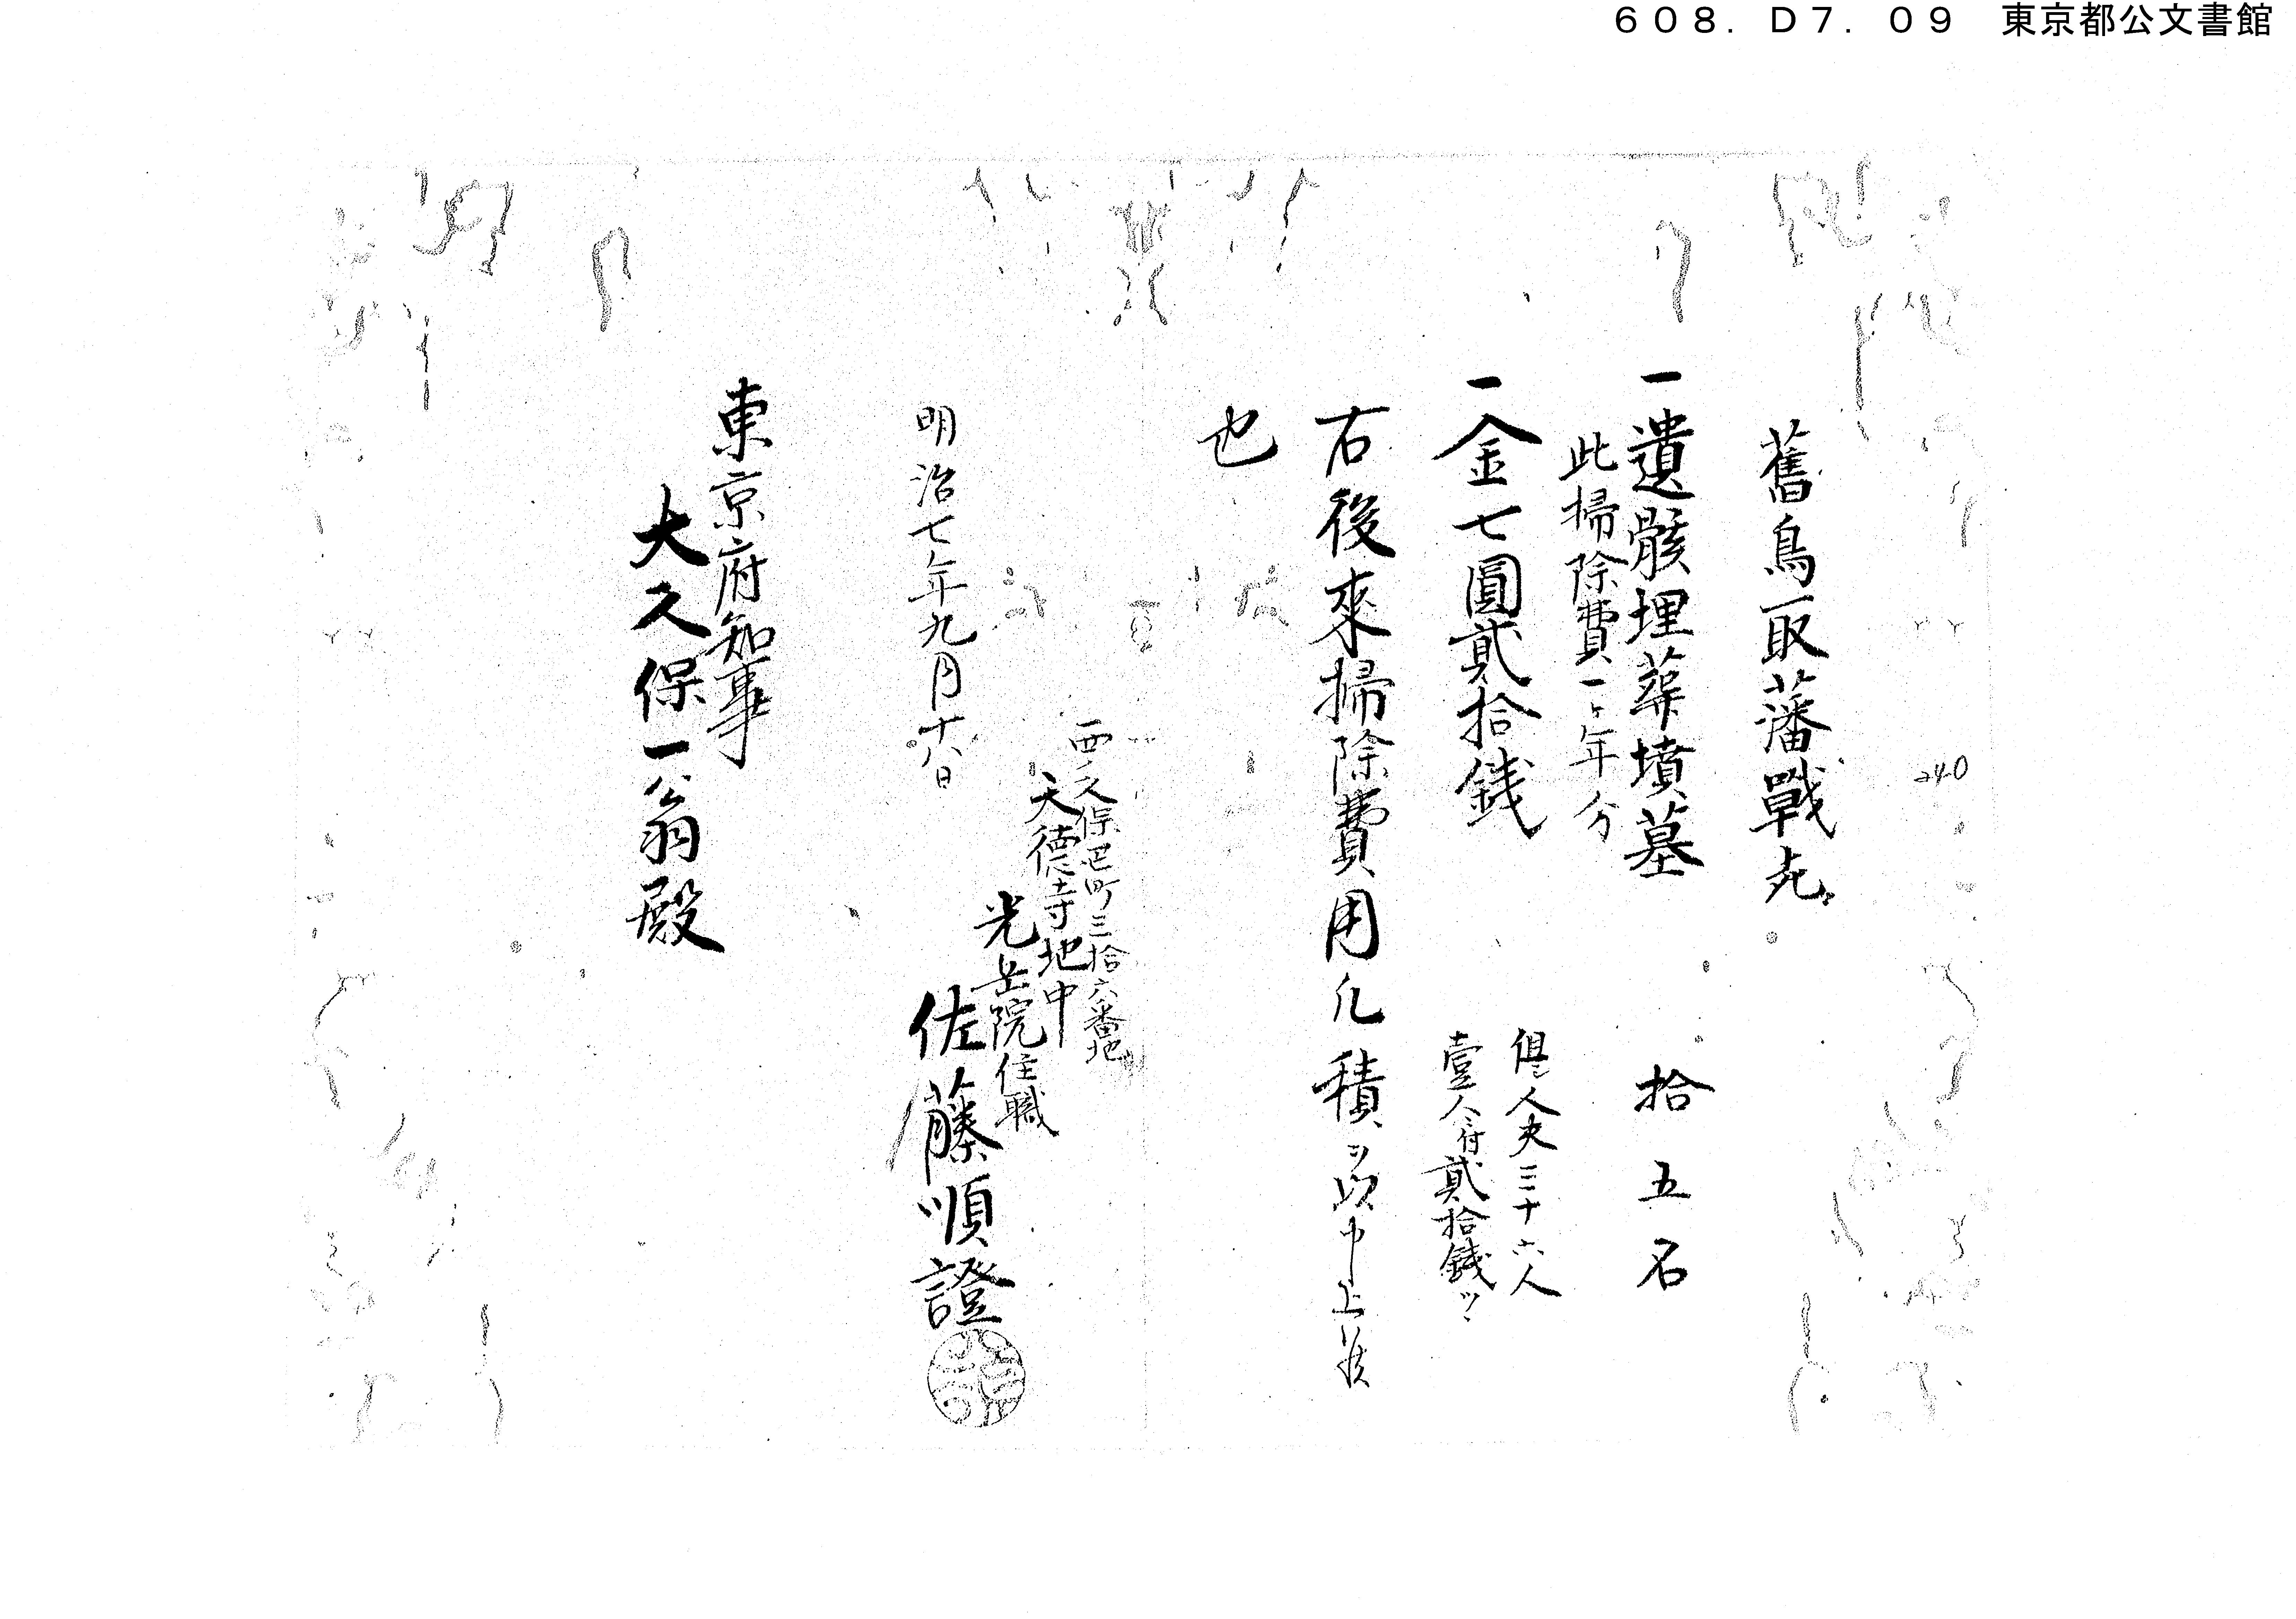 ６０８．Ｄ７．０９　東京都公文書館
240
舊鳥取藩戰死
一遺骸埋葬墳墓　拾五名
此掃除費一ヶ年分
一金七圓貳拾銭
但シ人夫三十六人
壹人ニ付貳拾銭ツヽ
右後來掃除費用凡積ヲ以申上候
也
西ノ久保巴町三拾六番地
天德寺地中
光岳院住職
佐藤順證
明治七年九月十八日
東京府知事
大久保一翁殿